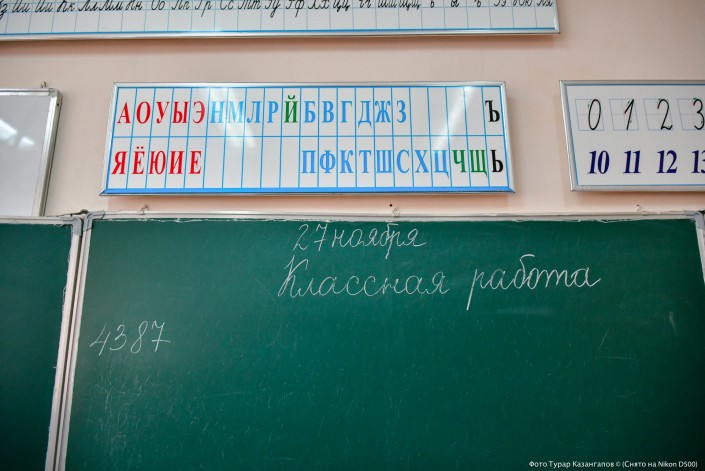 Ии Йй Кк Лл Мм Нн Оо Пп Рр Сс Тт Уу Фф Хх Цц Чч Шш Щщ ъ ы ь Ээ Юю Яя
А О У Ы Э Н М Л Р Й Б В Г Д Ж З Ъ
Я Ё Ю И Е П Ф К Т Ш С Х Ц Ч Щ Ь
0 1 2 3
10 11 12 13
27 ноября
Классная работа
4387
Фото Турар Казангапов © (Снято на Nikon D500)